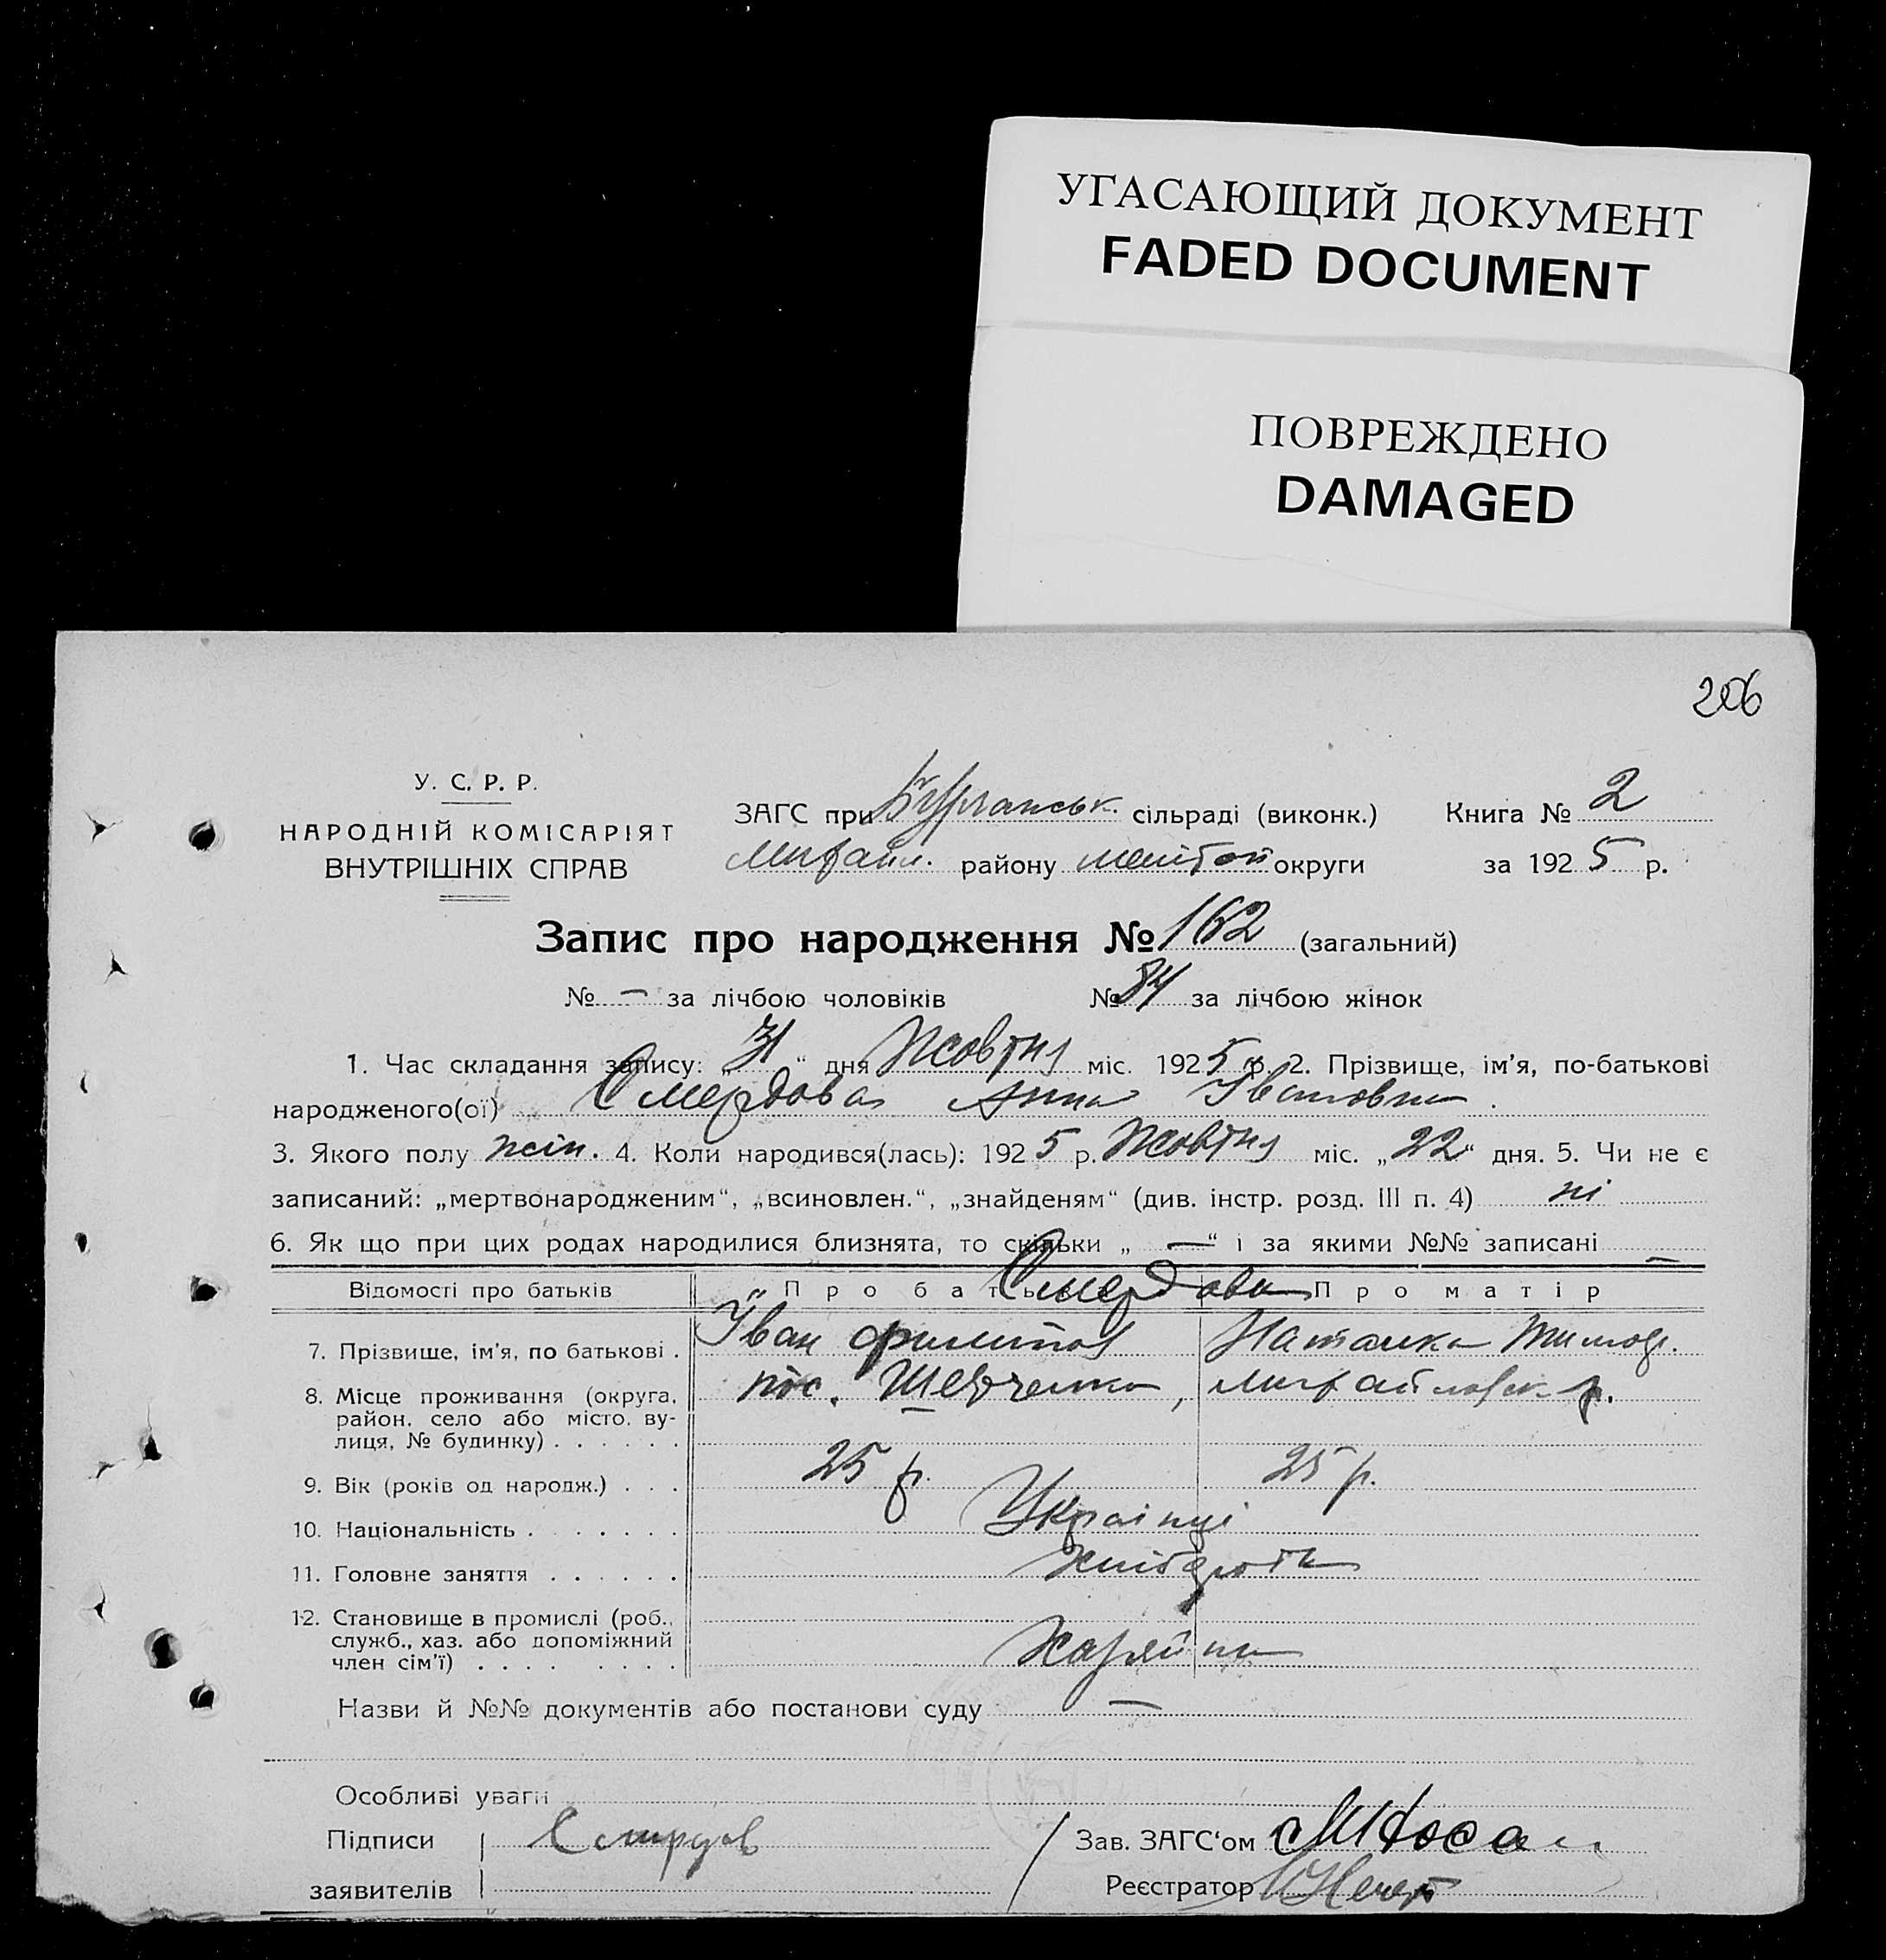 УГАСАЮЩИЙ ДОКУМЕНТ
FADED DOCUMENT
ПОВРЕЖДЕНО
DAMAGED
206
У. С. Р. Р.
НАРОДНІЙ КОМІСАРІЯТ
ВНУТРІШНІХ СПРАВ
ЗАГС при сільраді (виконк.) Книга № 2
Михайл. району меліт округи за 1925 р.
Запис про народження № 162 (загальний)
№ — за лічбою чоловіків № 84 за лічбою жінок
1. Час складання запису: „31“ дня Жовтня міс. 1925 р. 2. Прізвище, ім'я, по-батькові
народженого(ої) Смердова Анна Івановна.
3. Якого полу жін. 4. Коли народився(лась): 1925 р. Жовтня міс. „22“ дня. 5. Чи не є
записаний: „мертвонародженим“, „всиновлен.“, „знайденям“ (див. інстр. розд. III п. 4) ні
6. Як що при цих родах народилися близнята, то скільки „—“ і за якими №№ записані —
Відомості про батьків Про батька Про матір
Смердови
7. Прізвище, ім'я, по батькові . Іван Филипов Наталка Тимоф.
8. Місце проживання (округа, пос. Шевченка, Михайловск. р.
район, село або місто, ву-
лиця, № будинку) . . . . . .
9. Вік (років од народж.) . . . 25 р. 25 р.
10. Національність . . . . . . . Українці
11. Головне заняття . . . . . . Хлібороби
12. Становище в промислі (роб.,
служб., хаз. або допоміжний
член сім'ї) . . . . . . . . Хазяїни
Назви й №№ документів або постанови суду —
Особливі уваги
Підписи Смердов Зав. ЗАГС'ом
заявителів Реєстратор